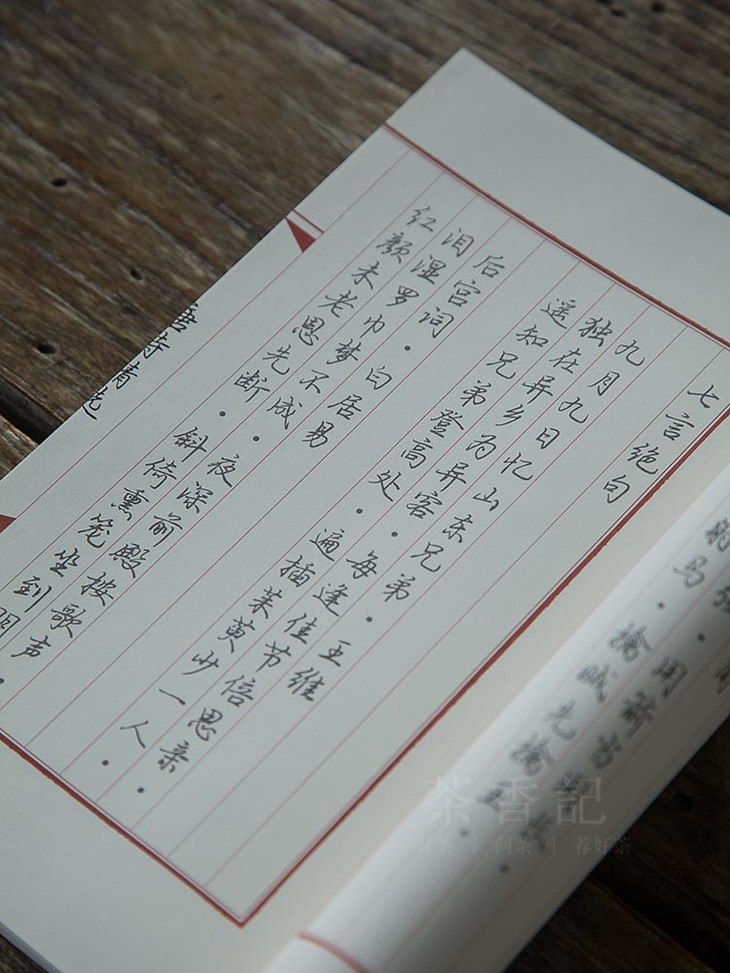 用箭当
射马·擒贼先擒王·
七言绝句
九月九日忆山东兄弟 王维
独在异乡为异客·每逢佳节倍思亲·
遥知兄弟登高处·遍插茱萸少一人·
后宫词 白居易
泪湿罗巾梦不成·夜深前殿按歌声
红颜未老恩先断·斜倚熏笼坐到明·
唐诗精选
茶香記
问茶 | 荐好茶